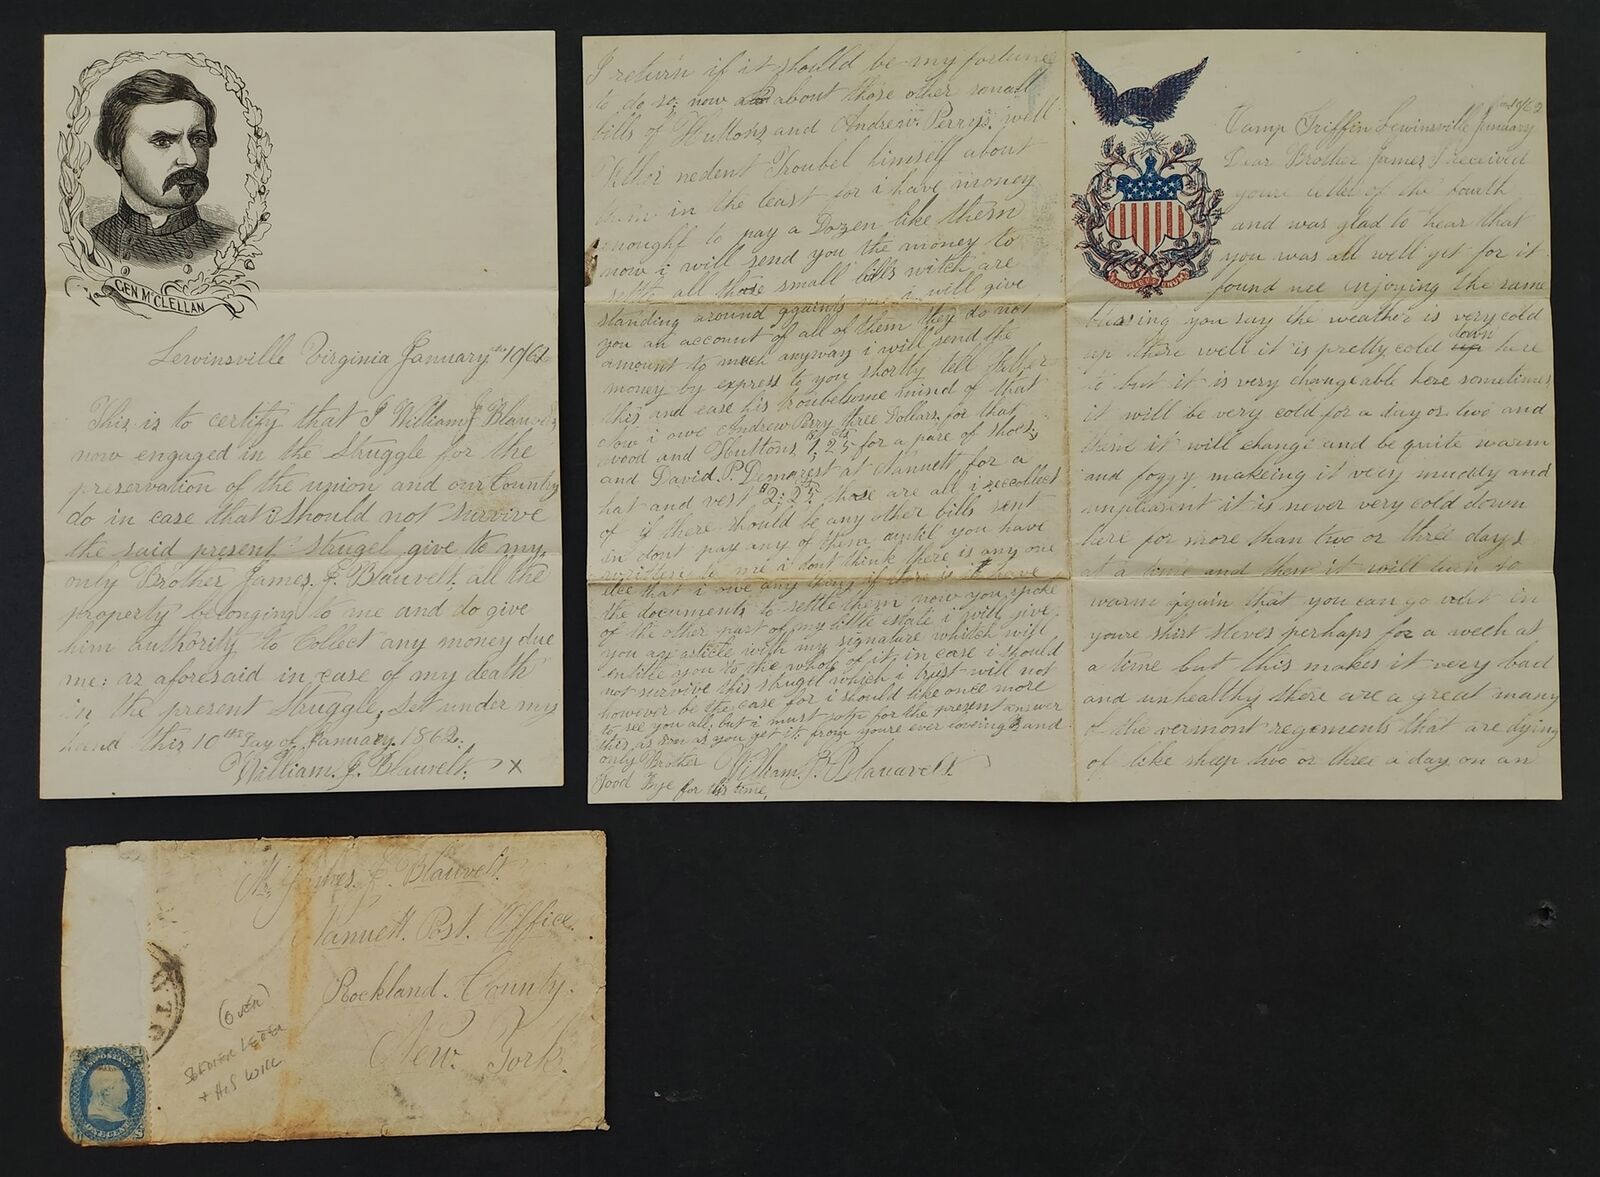 GEN McCLELLAN
Lewinsville Virginia January the 10/62
This is to certify that I William J Blauvelt
now engaged in the Struggle for the
preservation of the union and our Country
do in case that i Should not survive
the said present strugel, give to my
only Brother James. J. Blauvelt. all the
property belonging to me and do give
him authority to Collect any money due
me: as aforesaid in case of my death
in the present Struggle; Set under my
hand this 10th Day of January. 1862.
William. J. Blauvelt. X
I return if it should be my fortune
to do so; now about those other small
bills of Huttons and Andrew. Perrys. well
nedent Troubel himself about
them in the least for i have money
enoughf to pay a Dozen like them
now i will send you the money to
settle all those small bills witch are
standing around against me i will give
you an account of all of them they do not
amount to much anyway i will send the
money by express to you shortly tell Father
this and ease his troubelsome mind of that
now i owe Andrew Perry three Dollars. for that
wood and Huttons 1,25 for a pare of shoes;
and David. P. Demarest at Nanuett, for a
hat and vest $2:25 those are all i recollect
of if there should be any other bills sent
in dont pay any of them until you have
written to me i dont think there is any one
else that i owe any thing if there is i have
the documents to settle them now you spoke
of the other part of my little estate i will give
you an article with my signature whitch will
entitle you to the whole of it in case i should
not survive this strugel which i trust will not
however be the case for i should like once more
to see you all; but i must stop for the present answer
this as soon as you get it from youre ever loveing and
only Brother William. J. Blauvelt
Good Bye for this time.
E PLURIBUS UNUM
10/62
Camp Griffin Lewinsville January
Dear Brother James I received
youre letter of the fourth
and was glad to hear that
you was all well yet for it
found mee injoying the same
blessing you say the weather is very cold
up there well it is pretty cold down here
to but it is very changeable here sometimes
it will be very cold for a day or two and
then it will change and be quite warm
and foggy makeing it very muddy and
unpleasent it is never very cold down
here for more than two or three days
at a time and then it will turn so
warm again that you can go out in
youre shirt sleves perhaps for a week at
a time but this makes it very bad
and unhealthy there are a great many
of the vermont regements that are dying
of like sheep two or three a day on an
Mr. James. J. Blauvelt.
Nanuett. Post. Office.
Rockland. County.
New. York.
(OVER)
SOLDIER LETTER
+ HIS WILL